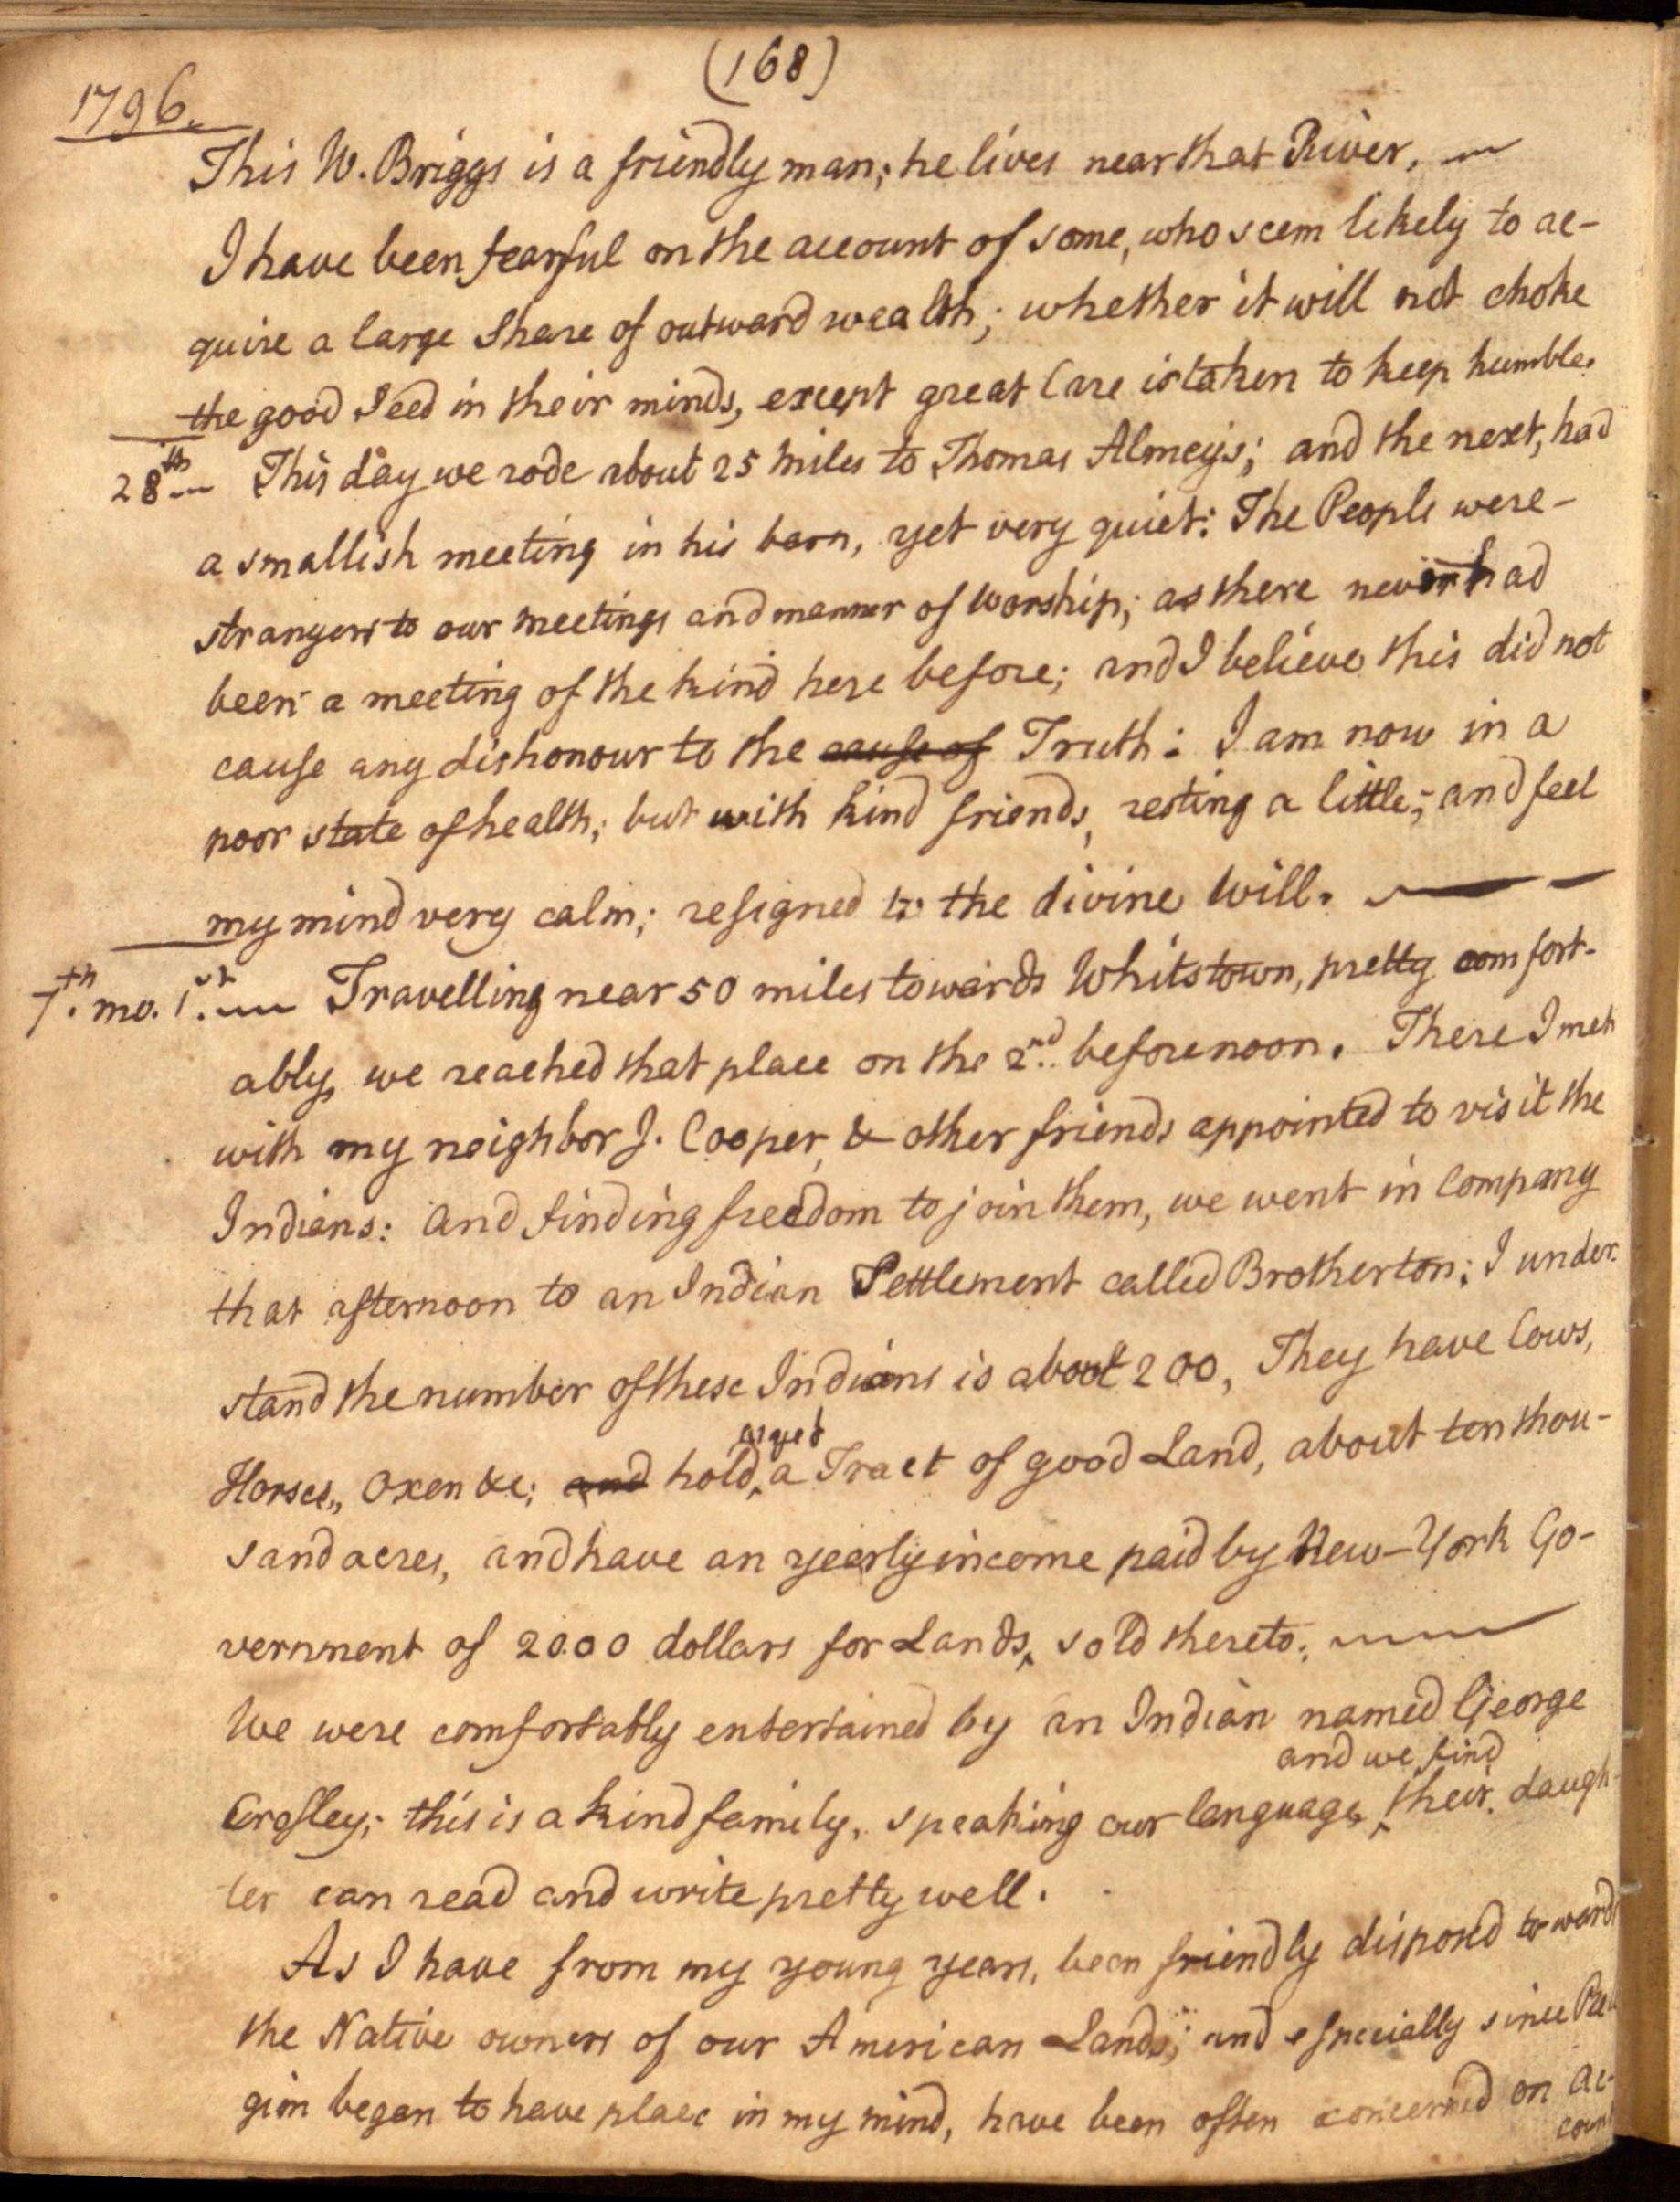 (168)
1796.
This W. Briggs is a friendly man; he lives near that River. —
I have been fearful on the account of some, who seem likely to ac-
quire a large Share of outward wealth; whether it will not choke
the good Seed in their minds, except great Care is taken to keep humble.
28th — This day we rode about 25 miles to Thomas Almey's; and the next, had
a smallish meeting in his barn, yet very quiet: The People were -
strangers to our meetings and manner of worship; as there never had
been a meeting of the kind here before; and I believe this did not
cause any dishonour to the cause of Truth: I am now in a
poor state of health; but with kind friends, resting a little; and feel
my mind very calm; resigned to the divine Will. —
7th. mo. 1st. — Travelling near 50 miles towards Whitstown, pretty comfort-
ably, we reached that place on the 2nd beforenoon. There I met
with my neighbor J. Cooper, & other friends appointed to visit the
Indians: and finding freedom to join them, we went in Company
that afternoon to an Indian Settlement called Brotherton; I under-
stand the number of these Indians is about 200, They have Cows,
Horses, Oxen &c; and hold, as yet a Tract of good Land, about ten thou-
sand acres, and have an yearly income paid by New-York Go-
vernment of 2000 dollars for Lands, sold thereto. —
We were comfortably entertained by an Indian named George
Crosley; this is a kind family, speaking our language, and we find their daugh-
ter can read and write pretty well.
As I have from my young years, been friendly disposed towards
the Native owners of our American Lands; and especially since Reli-
gion began to have place in my mind, have been often concerned on ac-
count